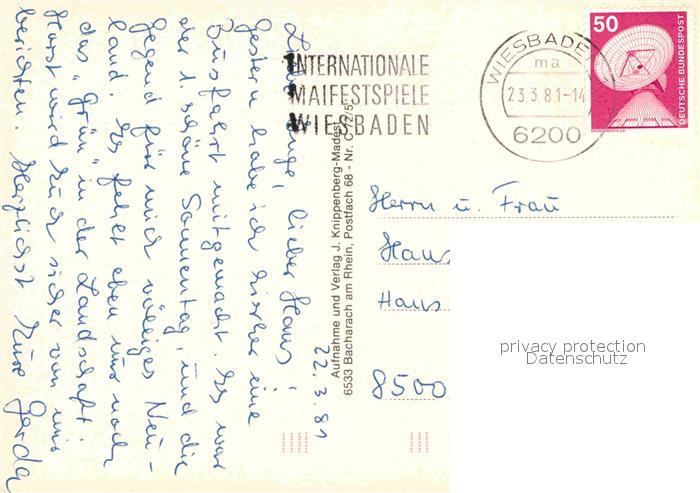 22.3.81
Liebe Inge, lieber Hans!
Gestern habe ich hierher eine
Busfahrt mitgemacht. Es war
der 1. schöne Sonnentag, und die
Gegend für mich völliges Neu-
land. Es fehlt eben nur noch
das "Grün" in der Landschaft.
Horst wird Euch sicher von uns
berichten. Herzlichst Eure Gerda
Aufnahme und Verlag J. Knippenberg-Mades
6533 Bacharach am Rhein, Postfach 68 - Nr.
INTERNATIONALE
MAIFESTSPIELE
WIESBADEN
WIESBADEN
ma
23.3.81-14
6200
50
DEUTSCHE BUNDESPOST
Herrn u. Frau
Hans
Hans
8500
privacy protection
Datenschutz